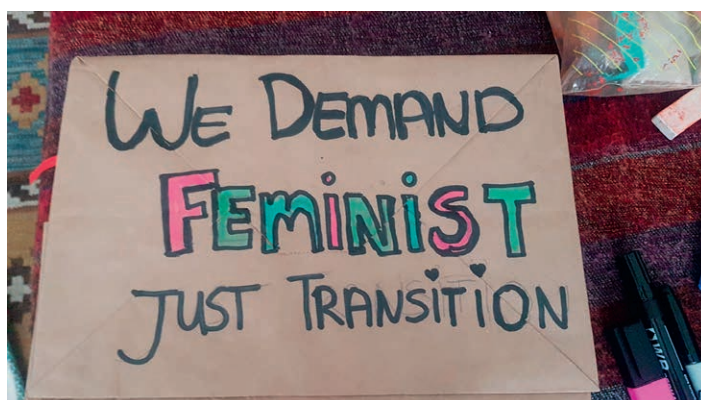 We DEMAND
FEMINIST
JUST TRANSITION